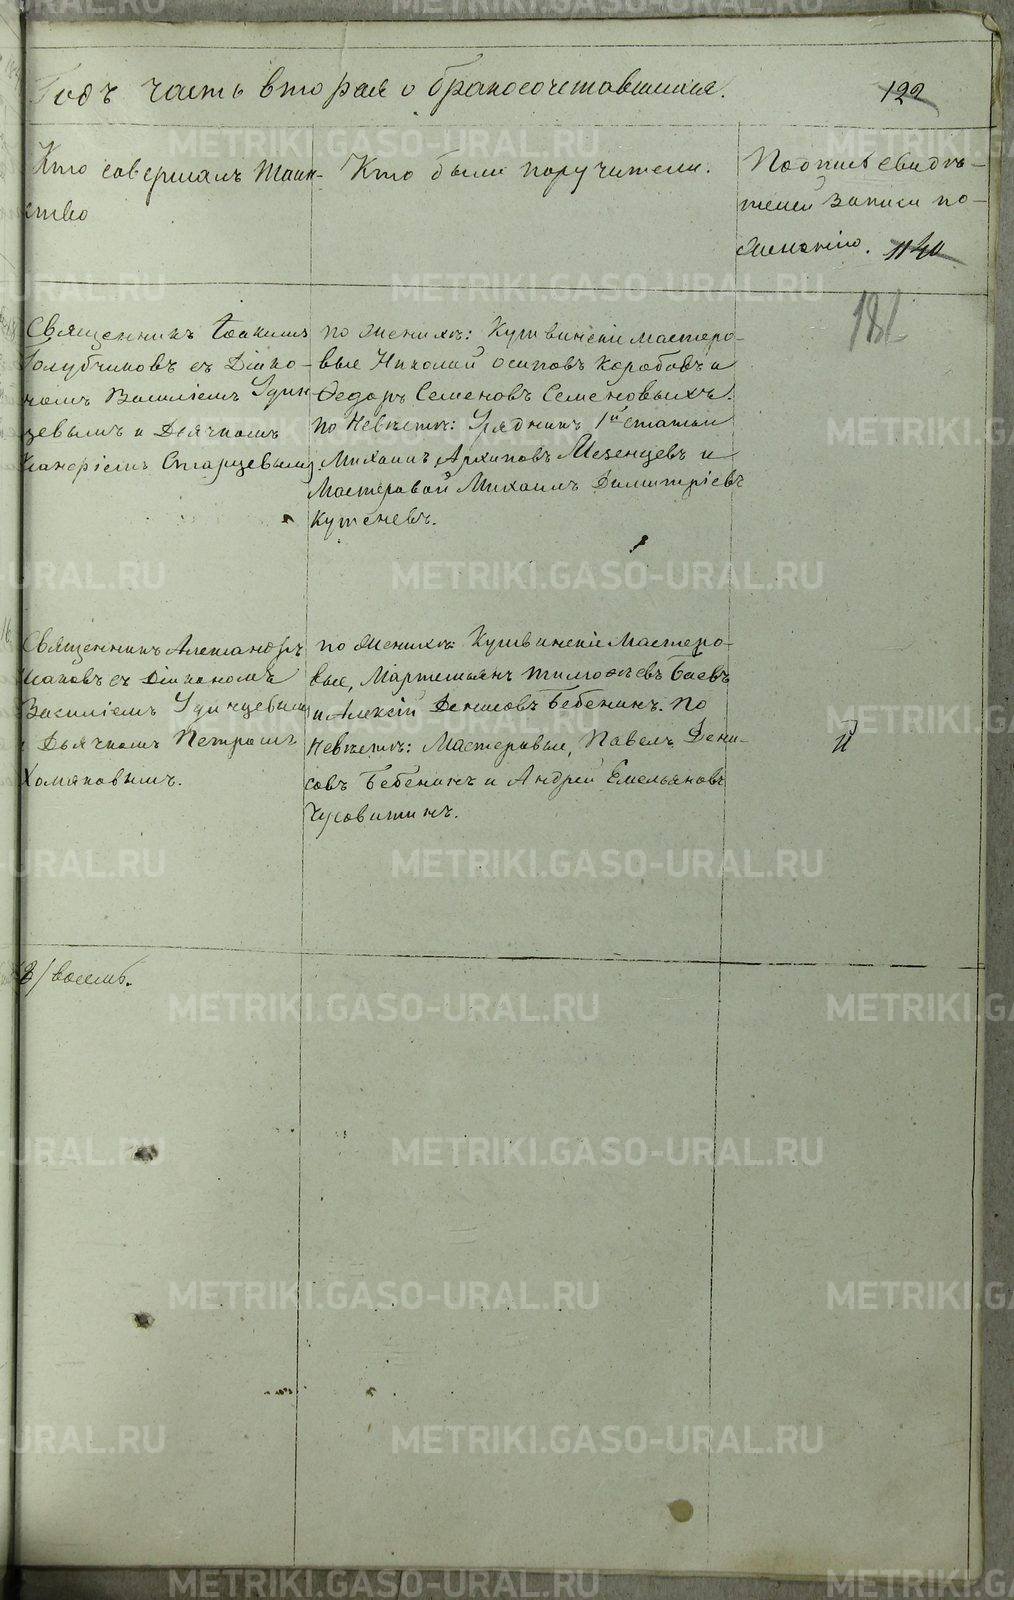 Годъ часть вторая о бракосочетавшихся.
122
Кто совершалъ Таин-
ство
Кто были поручители.
Подпись свидѣ-
телей записи по
желанію. 1140
181
Священникъ Іоакимъ
Голубчиковъ съ Діако-
номъ Василіемъ Удин-
цевымъ и Дьячкомъ
Старцевымъ
по женихѣ: Кушвинскіе мастеро-
вые Николай Осиповъ Коробовъ и
Федоръ Семеновъ Семеновыхъ.
По Невѣстѣ: Урядникъ 1й статьи
Михаилъ Архиповъ Мезенцевъ и
Мастеровой Михаилъ Димитріевъ
Кутеневъ.
Священникъ Александръ
Исаковъ съ Діакономъ
Василіемъ Удинцевымъ
и Дьячкомъ Петромъ
Хомяковымъ.
по женихѣ: Кушвинскіе Мастеро-
вые, Мартемьянъ Тимофѣевъ Баевъ
и Алексій Денисовъ Бебенинъ. По
Невѣстѣ: Мастеровые, Павелъ Дени-
совъ Бебенинъ и Андрей Емельяновъ
Чусовитинъ.
8/ восемь.
METRIKI.GASO-URAL.RU